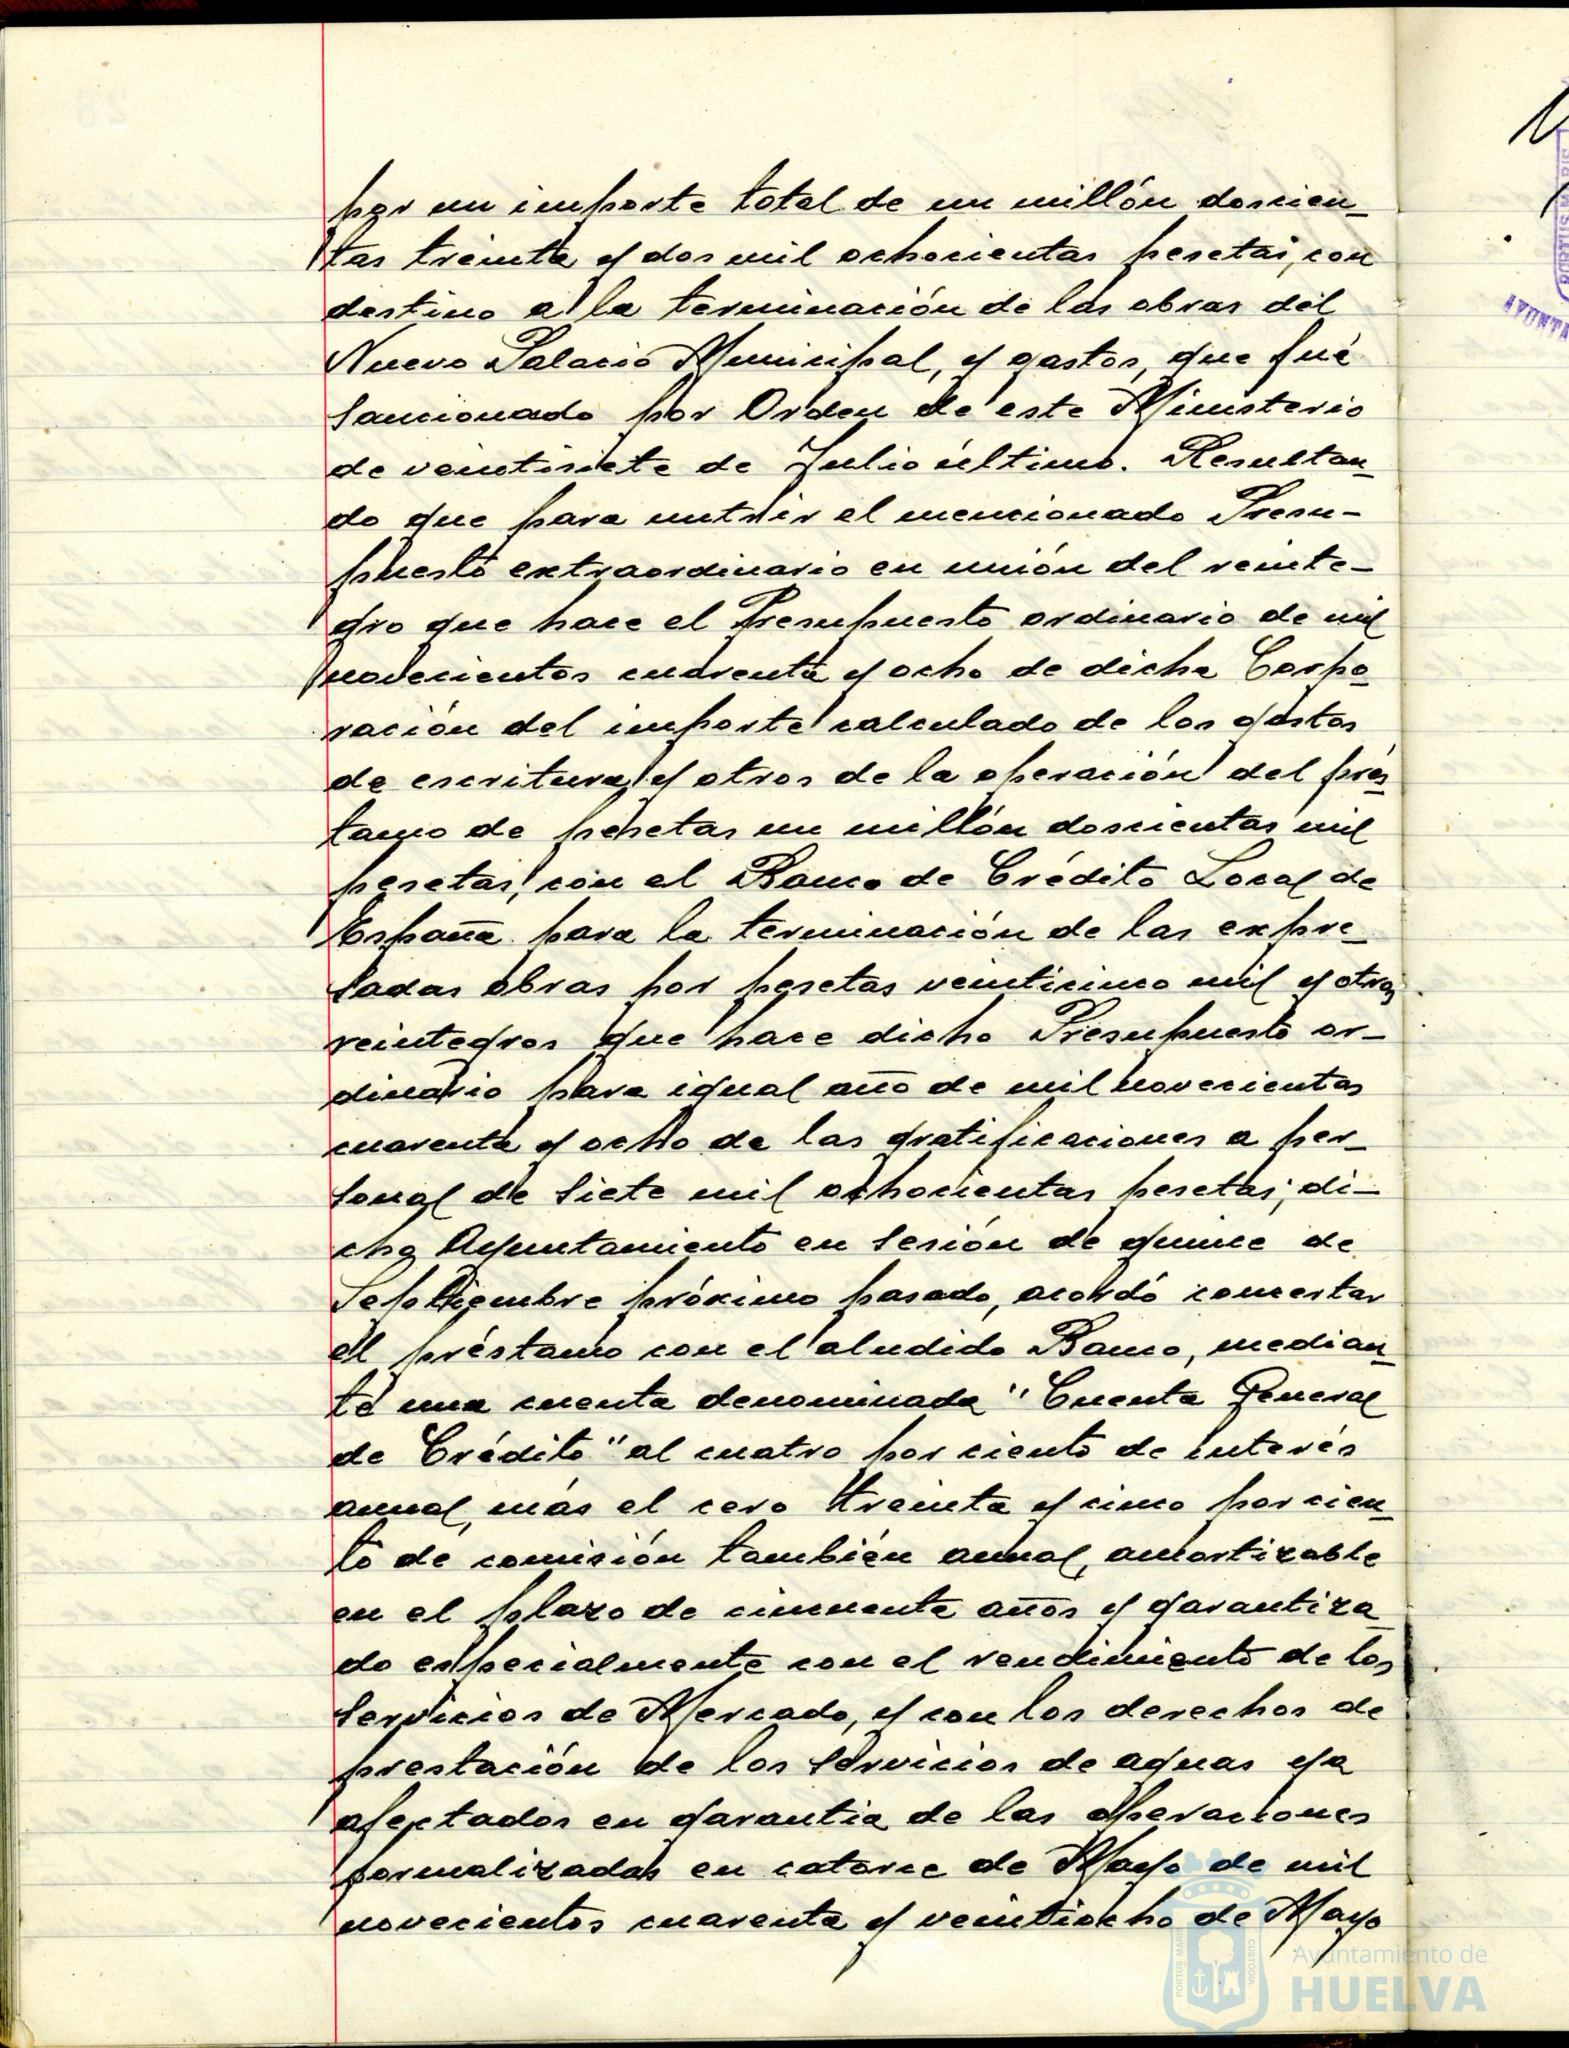 por un importe total de un millón doscien_
tas treinta y dos mil ochocientas pesetas, con
destino a la terminación de las obras del
Nuevo Palacio Municipal, y gastos, que fué
sancionado por Orden de este Ministerio
de veintisiete de Julio último. Resultan_
do que para nutrir el mencionado Presu-
puesto extraordinario en unión del reinte-
gro que hace el Presupuesto ordinario de mil
novecientos cuarenta y ocho de dicha Corpo_
ración del importe calculado de los gastos
de escritura y otros de la operación del prés_
tamo de pesetas un millón doscientas mil
pesetas, con el Banco de Crédito Local de
España para la terminación de las expre_
sadas obras por pesetas veinticinco mil y otros
reintegros que hace dicho Presupuesto or-
dinario para igual año de mil novecientos
cuarenta y ocho de las gratificaciones a per_
sonal de siete mil ochocientas pesetas; di-
cho Ayuntamiento en sesión de quince de
Septiembre próximo pasado, acordó concertar
el préstamo con el aludido Banco, median_
te una cuenta denominada "Cuenta General
de Crédito" al cuatro por ciento de interés
anual, más el cero treinta y cinco por cien_
to de comisión también anual, amortizable
en el plazo de cincuenta años y garantiza_
do especialmente con el rendimiento de los
servicios de Mercado, y con los derechos de
prestación de los servicios de aguas ya
afectados en garantia de las operaciones
formalizadas en catorce de Mayo de mil
novecientos cuarenta y veintiocho de Mayo
PORTUS MARIS
AYUNTA
PORTUS MARIS CUSTODIA
Ayuntamiento de
HUELVA